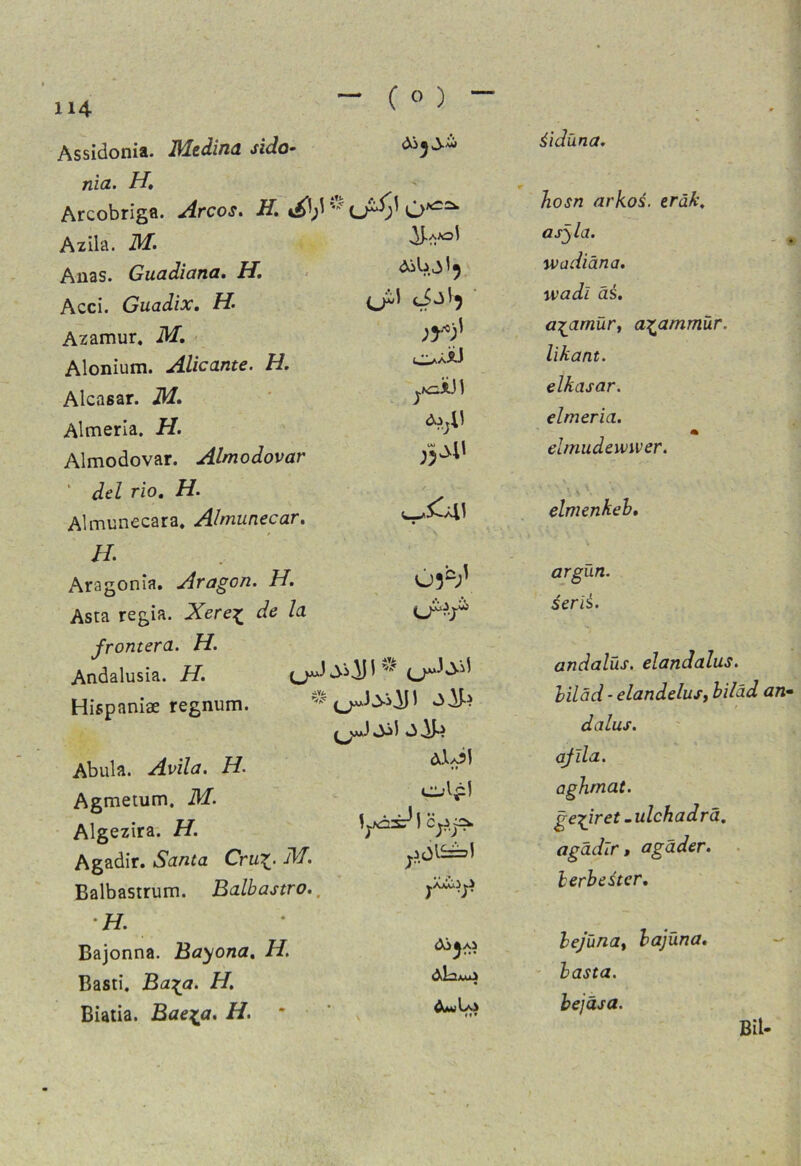 114 — ( o ) —
Assidonia. Medina sido- شدونه śidūna.
nia. H.
Arcobriga. Arcos. H. حصن اركش * اراك hosn arkoś. erāk.
Azila. M. اصيلا asȳla.
Anas. Guadiana. H. واديانه wadiāna.
Acci. Guadix. H. وادي اش wadī āś.
Azamur. M. ازمور aʒamūr, aʒammūr.
Alonium. Alicante. H. لقنت likant.
Alcasar. M. القصر elkasar.
Almeria. H. المريه elmeria.
Almodovar. Almodovar المدور elmudewwer.
del rio. H.
Almunecara. Almunecar. المنكب elmenkeb.
H.
Aragonia. Aragon. H. ارغون argūn.
Asta regia. Xereʒ de la شريش śerīś.
frontera. H.
Andalusia. H. اندلس * الاندلس andalūs. elandalus.
Hispaniæ regnum. بلاد الاندلس * bilād - elandelus, bilād an-
بلاد اندلس dalus.
Abula. Avila. H. افيله afīla.
Agmetum. M. اغمات aghmat.
Algezira. H. جزيرة الخضرا geʒiret - ulchadrā.
Agadir. Santa Cruʒ. M. اكادير agādīr, agāder.
Balbastrum. Balbastro. بربشتر berbeśter.
H.
Bajonna. Bayona. H. بيونه bejūna, bajūna.
Basti. Baʒa. H. بسطه basta.
Biatia. Baeʒa. H. بياسه bejāsa.
Bil-